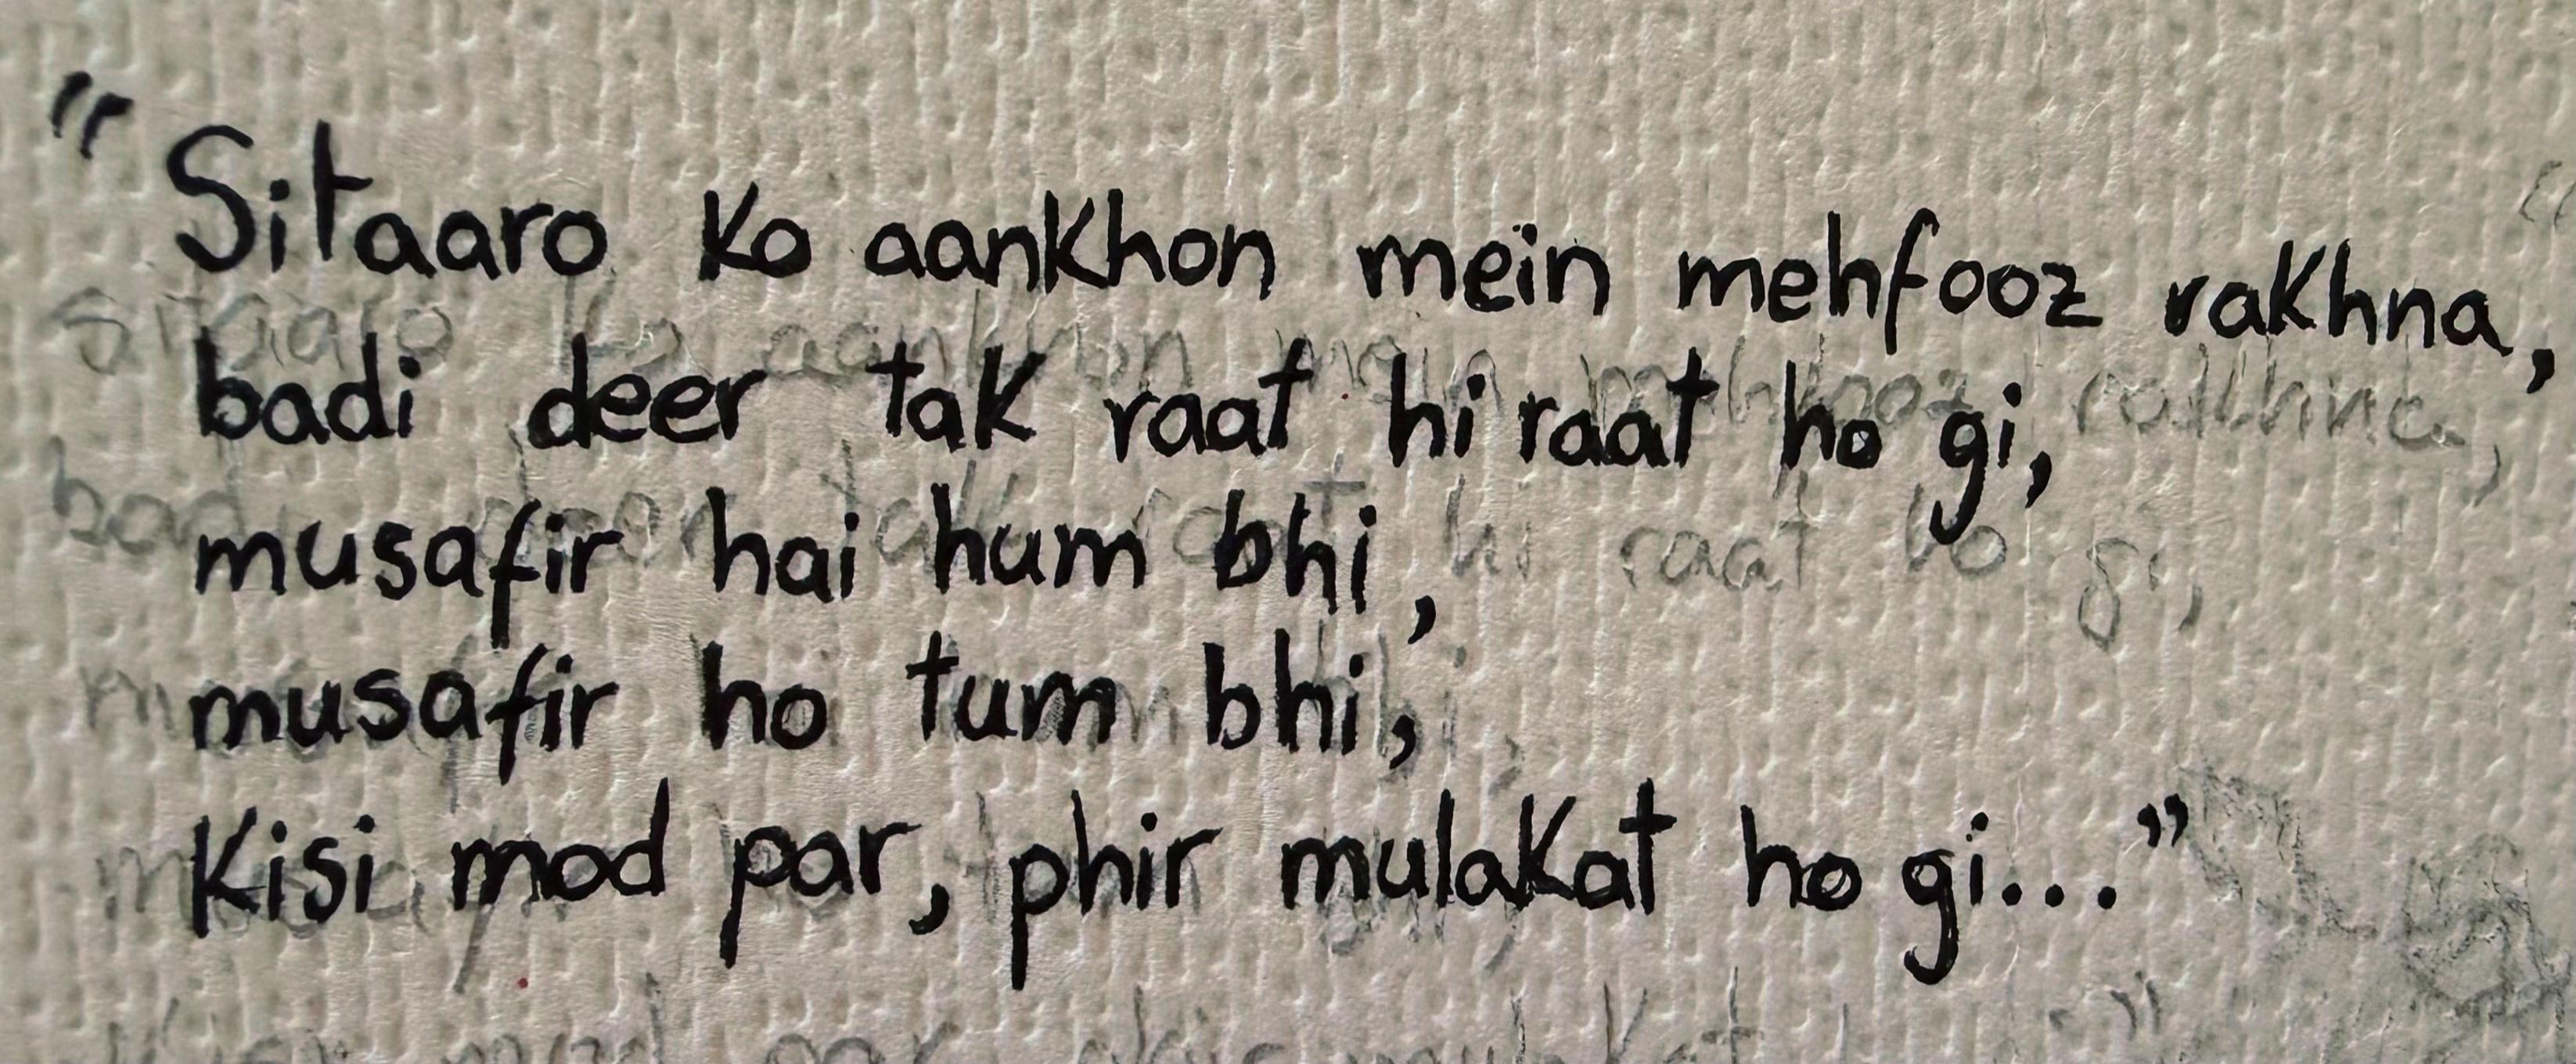 "Sitaaro ko aankhon mein mehfooz rakhna,
badi deer tak raat hi raat ho gi,
musafir hai hum bhi,
musafir ho tum bhi,
Kisi mod par, phir mulakat ho gi..."